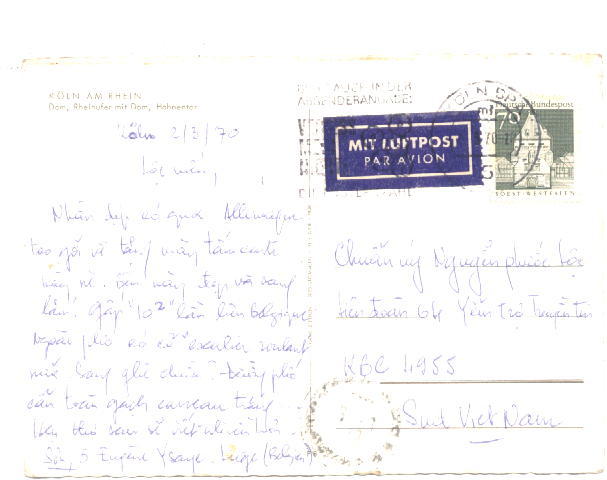 KÖLN AM RHEIN
Dom, Rheinufer mit Dom, Hahnentor
AUCH IN DER
ABSENDERANGABE:
KÖLN
MIT LUFTPOST
PAR AVION
Deutsche Bundespost
70
SOEST-WESTFALEN
Köln 2/3/70
Lộc mến,
Nhân dịp có qua Allemagne
tao gởi về tặng mày tấm carte
này nè. Bên này đẹp và sang
lắm! Gấp "10²" lần bên Belgique
Ngoài phố có cả escalier roulant
mà sang ghê chưa. Đường phố
cẩn toàn gạch carreau trắng.
Hẹn thơ sau sẽ viết nhiều hơn.
5 Eugène Ysaye. Liège (Belgique)
Chuẩn úy Nguyễn phước Lộc
liên đoàn 64 Yểm trợ Truyền tin
KBC 4955
Sud Việt Nam